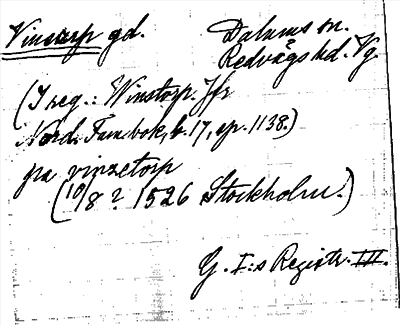 Vinstorp gd. Dalums sn.
Redvägs hd. Vg.
(I reg.: Winstorp. Jfr
Nord. Fam.bok, b. 17, sp. 1138.)
pa vinzetorp
(10/8 ? 1526 Stockholm.)
G. I:s Registr. III.